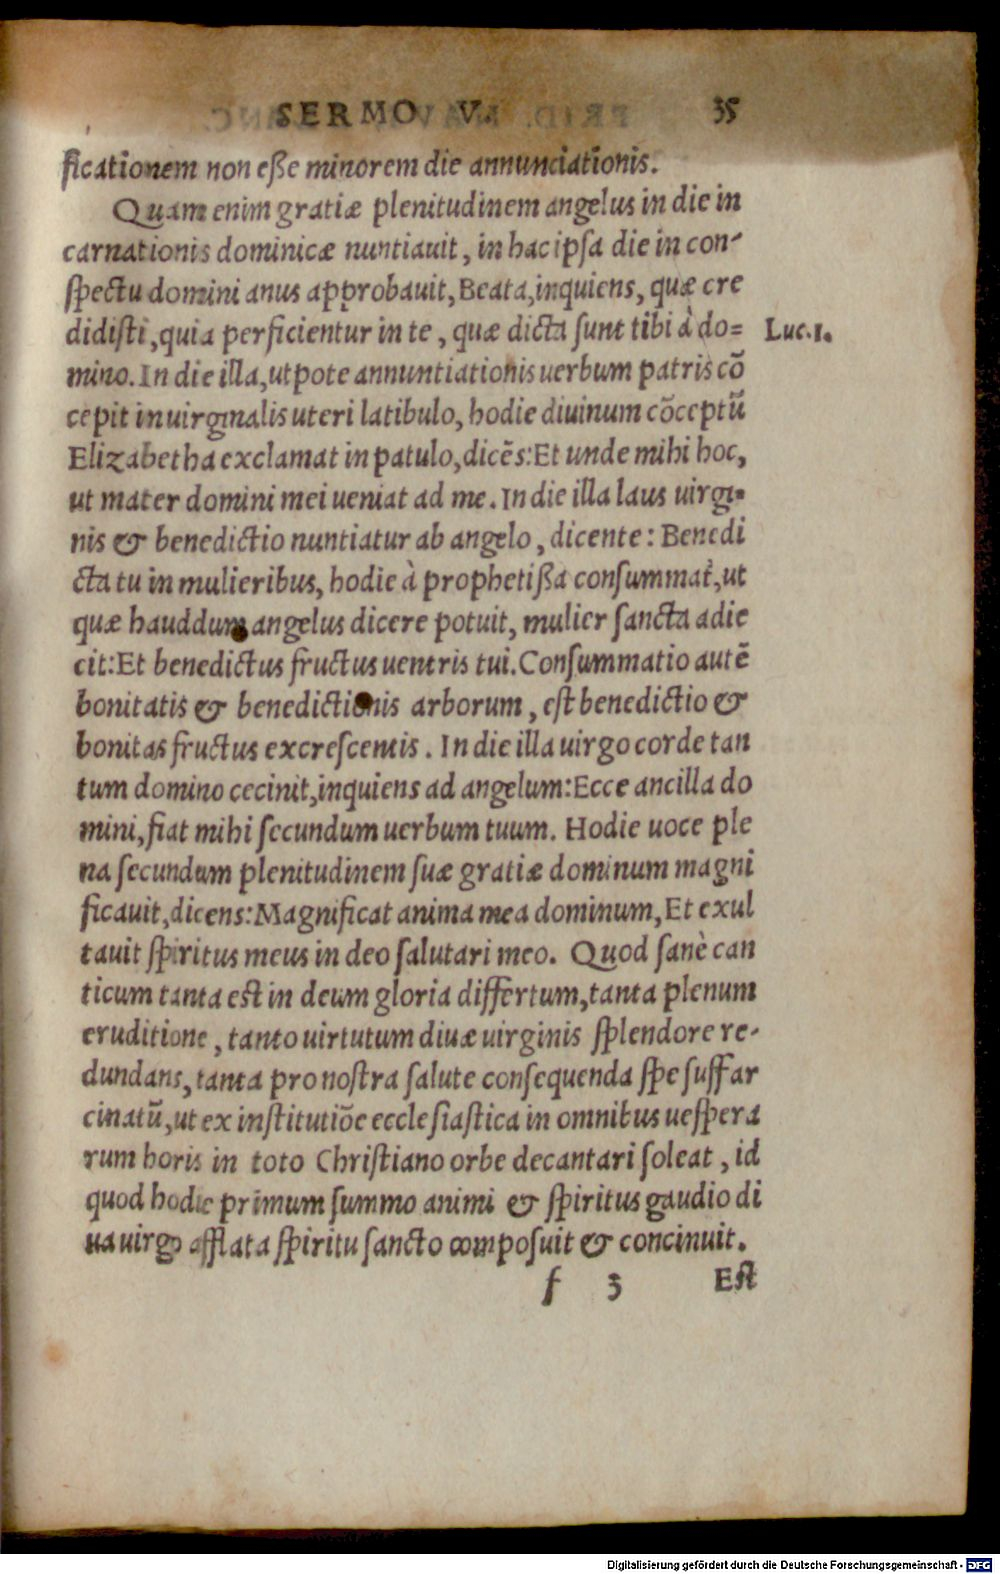 SERMO V. 35
ficationem non eße minorem die annunciationis.
Quam enim gratiæ plenitudinem angelus in die in
carnationis dominicæ nuntiauit, in hac ipſa die in con-
ſpectu domini anus approbauit, Beata, inquiens, quæ cre
didiſti, quia perficientur in te, quæ dicta ſunt tibi à do= Luc.1.
mino. In die illa, utpote annuntiationis uerbum patris cō
cepit in uirginalis uteri latibulo, hodie diuinum cōceptū
Elizabetha exclamat in patulo, dicēs: Et unde mihi hoc,
ut mater domini mei ueniat ad me. In die illa laus uirgi=
nis & benedictio nuntiatur ab angelo, dicente: Benedi
cta tu in mulieribus, hodie à prophetißa conſummat̉, ut
quæ hauddum angelus dicere potuit, mulier ſancta adie
cit: Et benedictus fructus uentris tui. Conſummatio autē
bonitatis & benedictionis arborum, eſt benedictio &
bonitas fructus excreſcentis. In die illa uirgo corde tan
tum domino cecinit, inquiens ad angelum: Ecce ancilla do
mini, fiat mihi ſecundum uerbum tuum. Hodie uoce ple
na ſecundum plenitudinem ſuæ gratiæ dominum magni
ficauit, dicens: Magnificat anima mea dominum, Et exul
tauit ſpiritus meus in deo ſalutari meo. Quod ſanè can
ticum tanta eſt in deum gloria differtum, tanta plenum
eruditione, tanto uirtutum diuæ uirginis ſplendore re-
dundans, tanta pro noſtra ſalute conſequenda ſpe ſuffar
cinatū, ut ex inſtitutiōe eccleſiaſtica in omnibus ueſpera
rum horis in toto Chriſtiano orbe decantari ſoleat, id
quod hodie primum ſummo animi & ſpiritus gaudio di
ua uirgo afflata ſpiritu ſancto compoſuit & concinuit.
f 3 Eſt
Digitalisierung gefördert durch die Deutsche Forschungsgemeinschaft - DFG